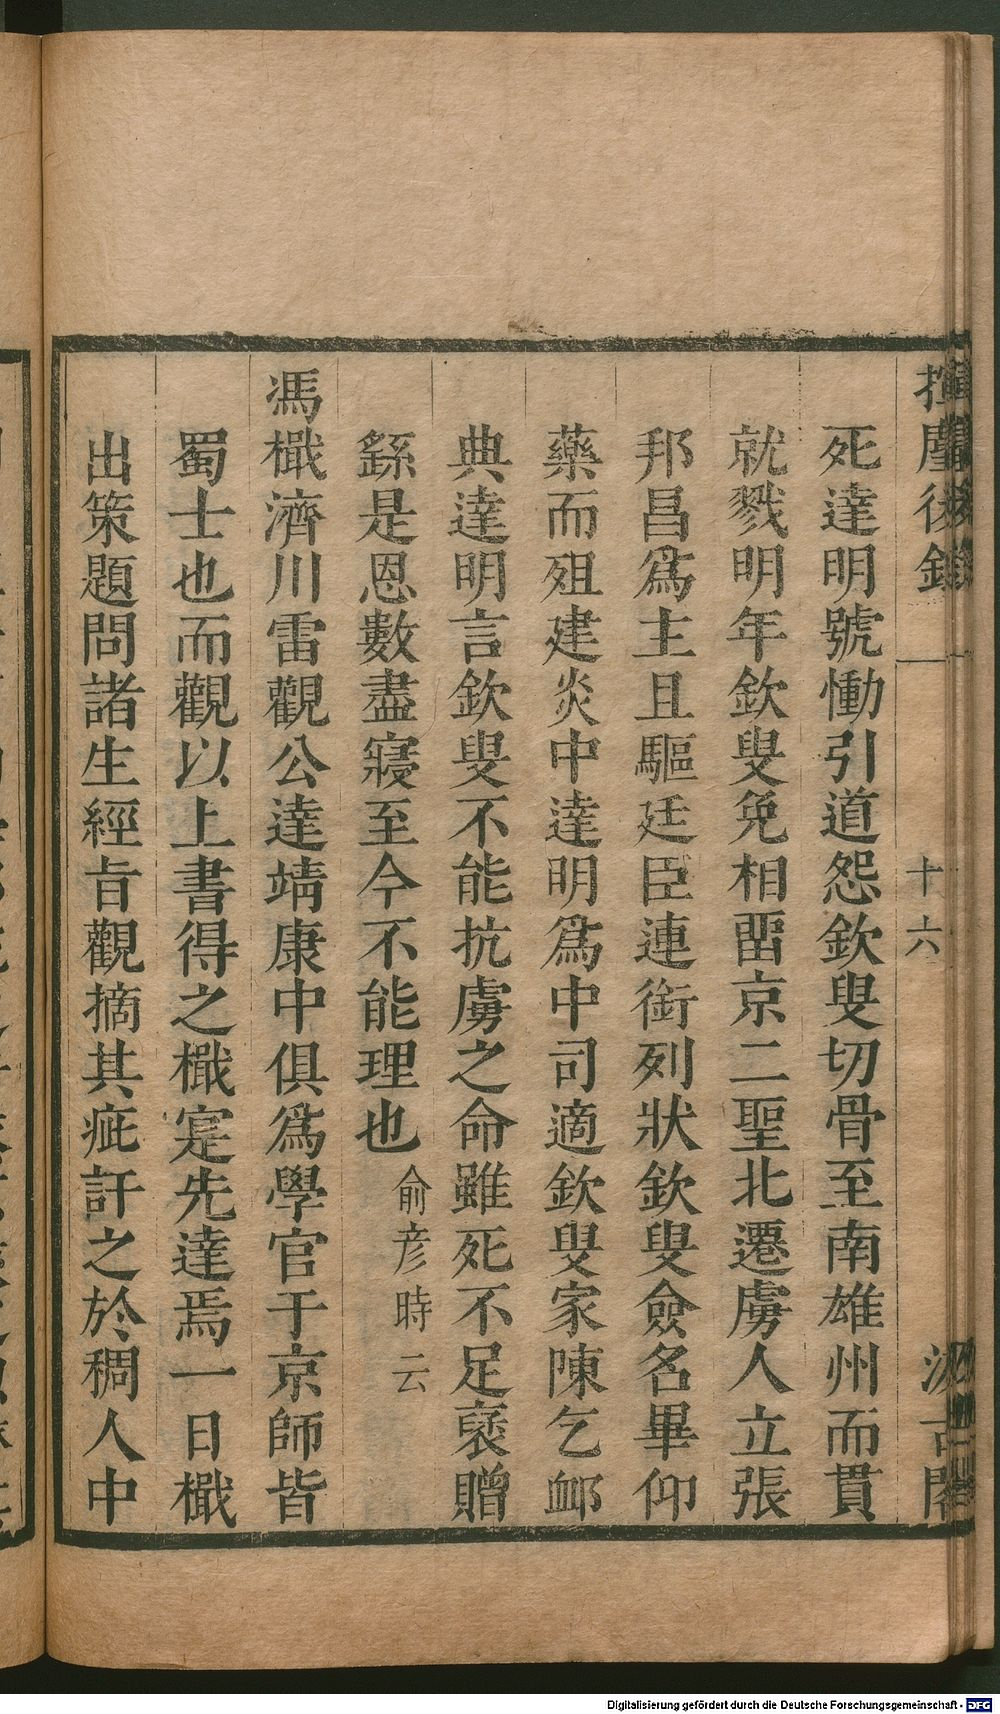 揮麈後錄
十六
汲古閣
死達明號慟引道怨欽叟切骨至南雄州而貫
就戮明年欽叟免相畱京二聖北遷虜人立張
邦昌爲主且驅廷臣連銜列狀欽叟僉名畢仰
藥而殂建炎中達明爲中司適欽叟家陳乞䘏
典達明言欽叟不能抗虜之命雖死不足襃贈
繇是恩數盡寢至今不能理也俞彦時云
馮檝濟川雷觀公達靖康中俱爲學官于京師皆
蜀士也而觀以上書得之檝寔先達焉一日檝
出策題問諸生經旨觀摘其疵訐之於稠人中
Digitalisierung gefördert durch die Deutsche Forschungsgemeinschaft - DFG